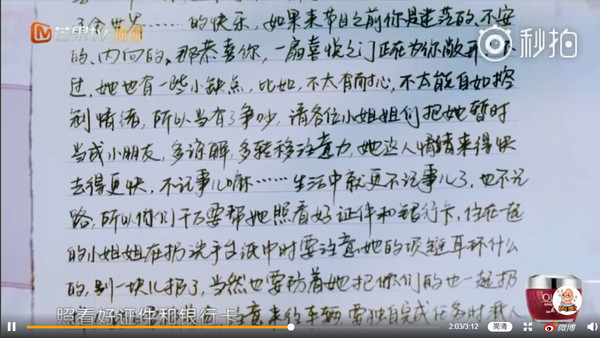 芒果TV 独播
秒拍
……的快乐,如果来节目之前你是迷茫的、不安
的、内向的,那恭喜你,一扇喜悦之门正在为你敞开
过,她也有一些小缺点,比如,不太有耐心,不太能自如控
制情绪,所以当有了争吵,请各位小姐姐们把她暂时
当成小朋友,多谅解,多转移注意力,她这人情绪来得快
去得更快,不记事儿嘛……生活中就更不记事儿了,也不记
路,所以你们千万要帮她照看好证件和银行卡,住在一起
的小姐姐在扔洗手台纸巾时要注意她的项链耳环什么
的,别一块儿扔了,当然也要防着她把你们的也一起扔
照看好证件和银行卡
注意来往车辆,要独自完成任务时
2:03/3:12
高清
微博